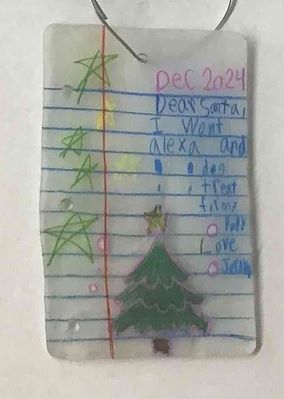 Dec 2024
Dear Santa,
I Want
alexa and
dog
treat
for my
Love